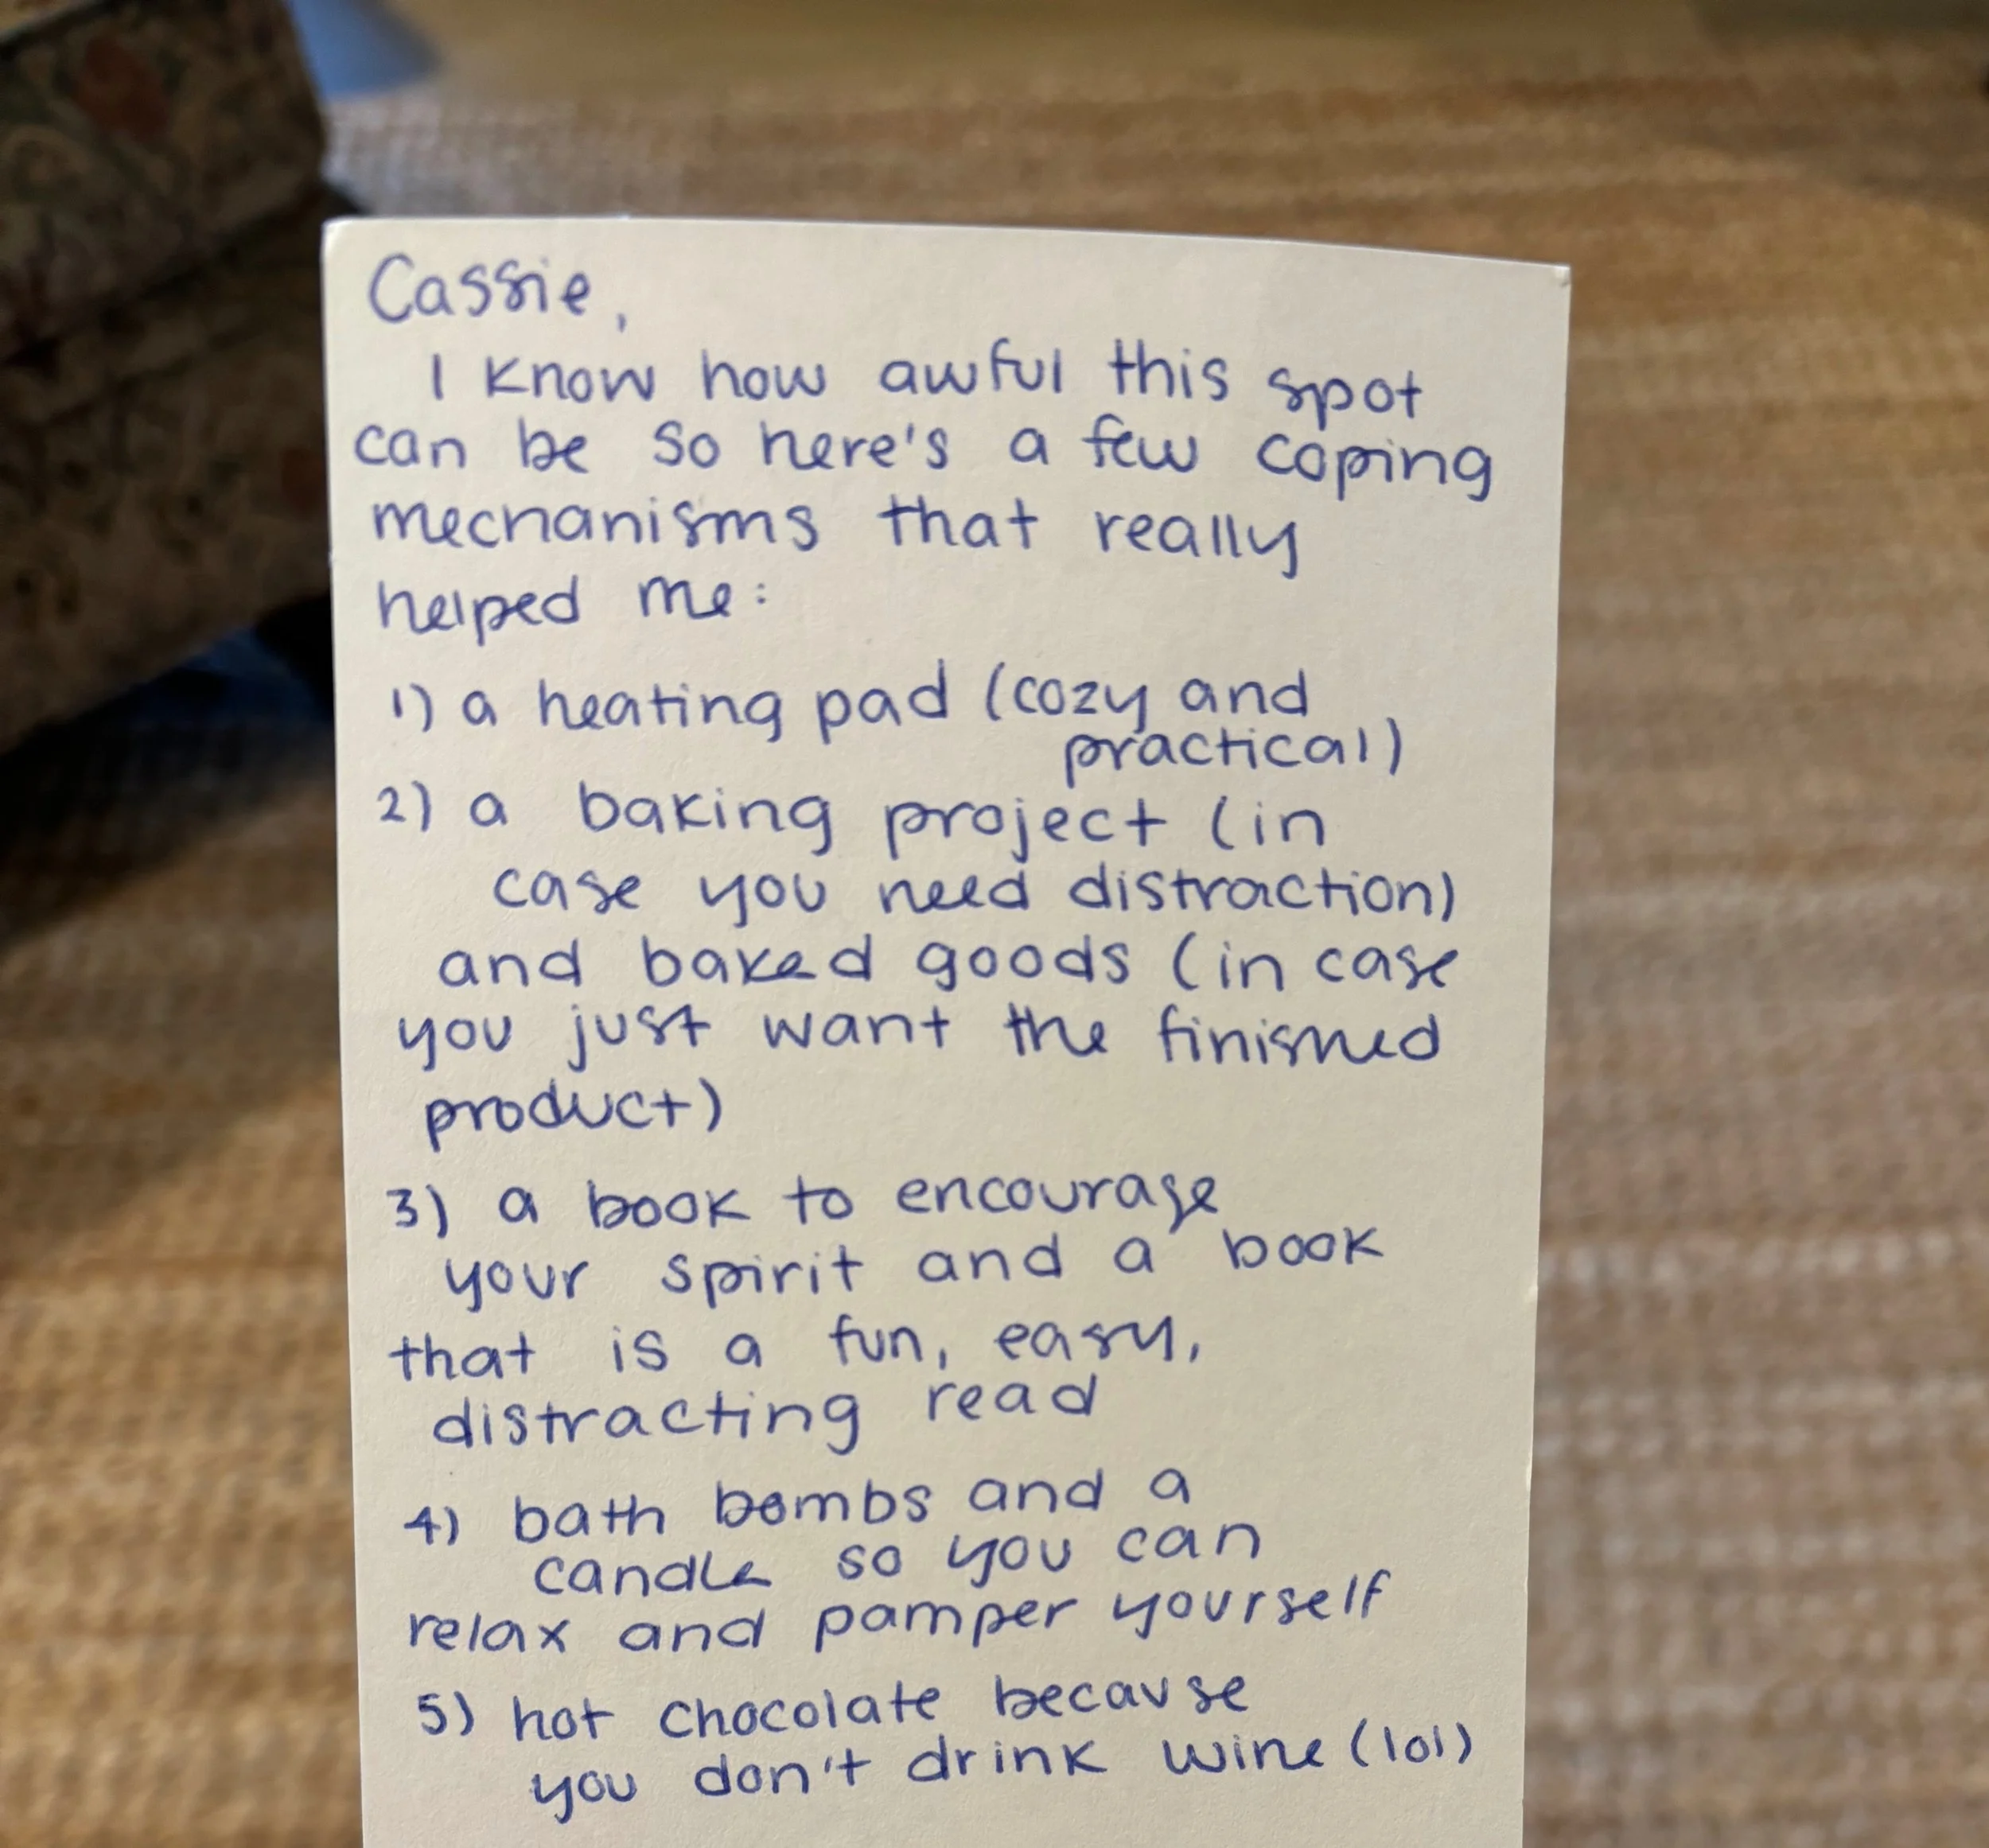 Cassie,
I know how awful this spot
can be so here's a few coping
mechanisms that really
helped me:
1) a heating pad (cozy and
practical)
2) a baking project (in
case you need distraction)
and baked goods (in case
you just want the finished
product)
3) a book to encourage
your spirit and a book
that is a fun, easy,
distracting read
4) bath bombs and a
candle so you can
relax and pamper yourself
5) hot chocolate because
you don't drink wine (lol)